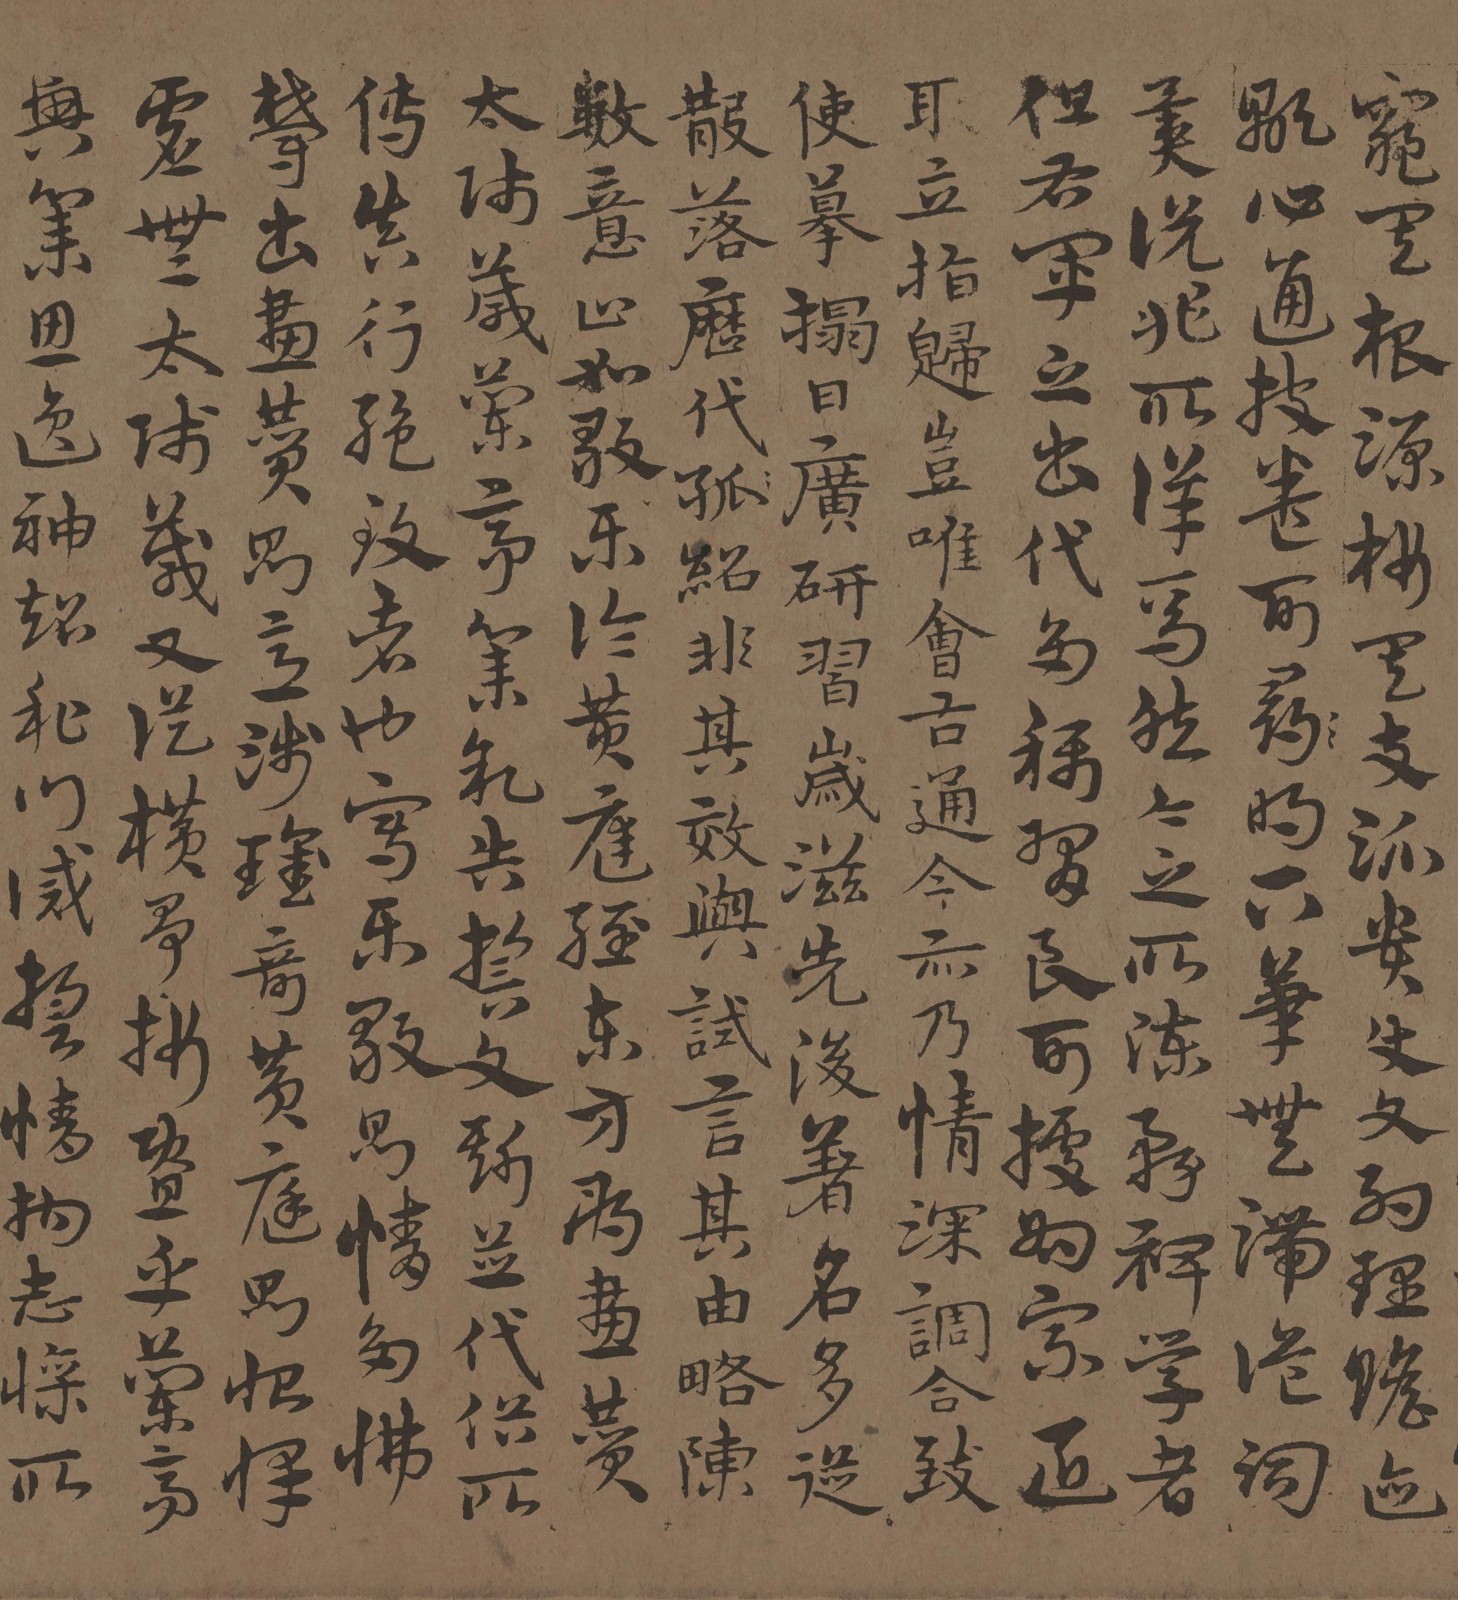 窮其根源析其枝派貴使文約理贍迹
顯心通披卷可尋明下筆無滯詭詞
異說非所詳焉然今之所陳務裨學者
但右軍之書代多稱習良可據為宗匠
取立指歸豈唯會古通今亦乃情深調合致
使摹搨日廣研習歲滋先後著名多從
散落歷代孤紹非其效與試言其由略陳
數意止如樂毅論黃庭經東方朔畫贊
太師箴蘭亭集序告誓文斯並代俗所
傳真行絕致者也寫樂毅則情多怫
鬱書畫贊則意涉瓌奇黃庭則怡懌
虛無太師箴又從橫爭折暨乎蘭亭
興集思逸神超私門誡誓情拘志慘所